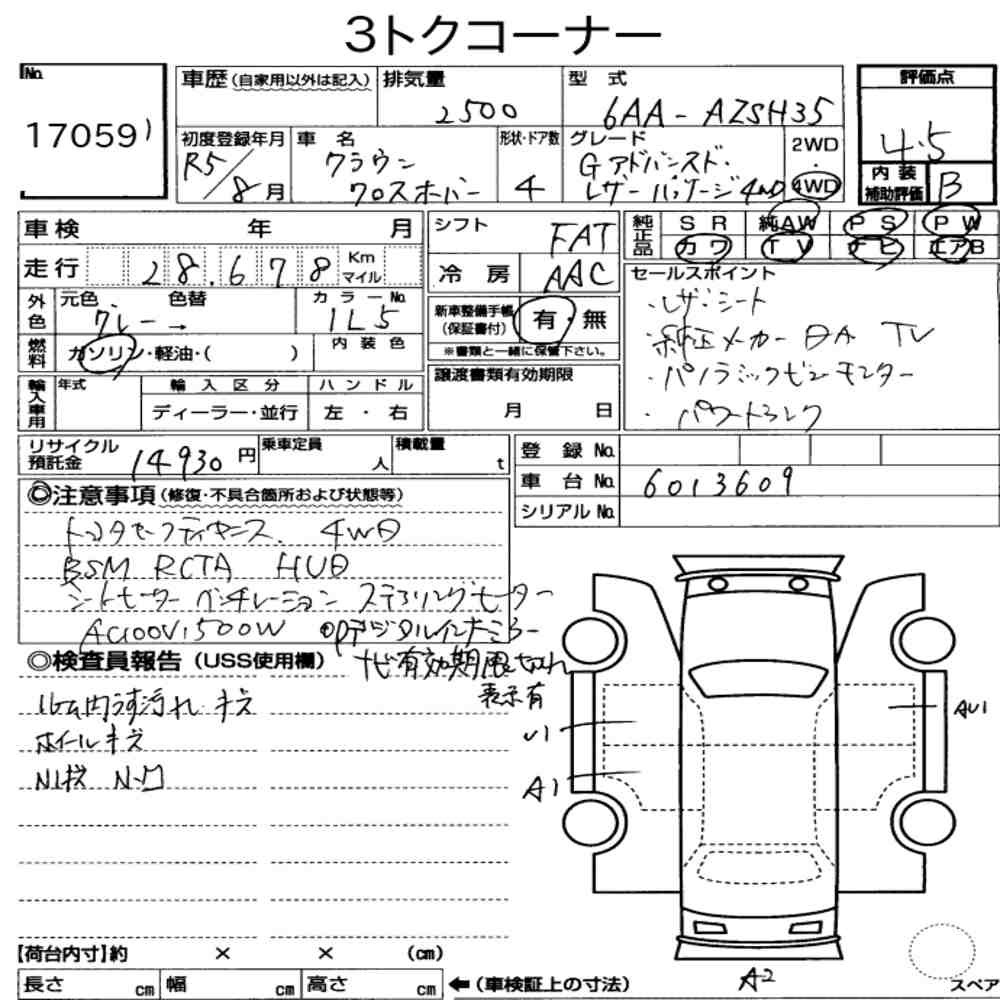 3トクコーナー
No. 17059
車歴 (自家用以外は記入) 排気量 2500 型式 6AA-AZSH35
評価点 4.5
初度登録年月 R5/8月 車名 クラウン クロスオーバー 形状・ドア数 4 グレード Gアドバンスド・レザーパッケージ4WD 2WD・4WD
内装補助評価 B
車検 年 月 シフト FAT
純正品 SR 純AW PS PW
カワ TV ナビ エアB
走行 28,678 Km マイル 冷房 AAC
外色 元色 グレー→ 色替 カラーNo. 1L5
新車整備手帳 (保証書付) 有・無
※書類と一緒に保管下さい。
燃料 ガソリン・軽油・( ) 内装色
セールスポイント
・レザーシート
・純正メーカーDA TV
・パノラミックビューモニター
・パワートランク
輸入車用 年式 輸入区分 ディーラー・並行 ハンドル 左・右
譲渡書類有効期限 月 日
リサイクル預託金 14930円 乗車定員 人 積載量 t
登録No.
車台No. 6013609
シリアルNo.
◎注意事項 (修復・不具合箇所および状態等)
トヨタセーフティセンス 4WD
BSM RCTA HUD
シートヒーター ベンチレーション ステアリングヒーター
AC100V1500W OPデジタルインナーミラー
ナビ有効期限
表示有
◎検査員報告 (USS使用欄)
内うす汚れ キズ
ホイールキズ
U1
A1
AU1
A2
【荷台内寸】約 × × (cm)
長さ cm 幅 cm 高さ cm ←(車検証上の寸法)
スペア